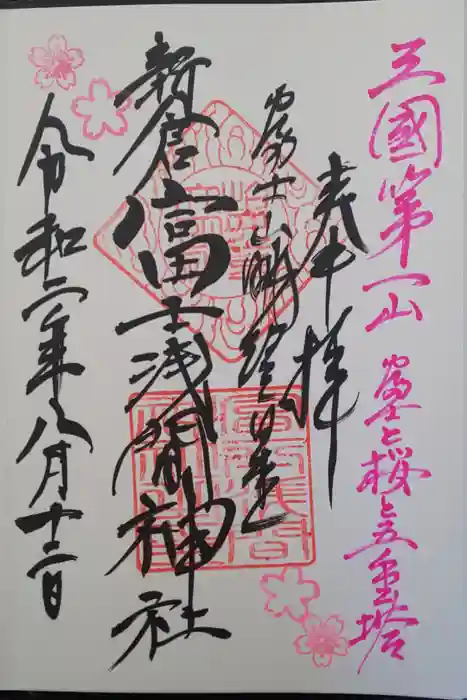 三國第一山 富士と桜と五重塔
奉拝
富士山
新倉富士浅間神社
令和二年八月十三日